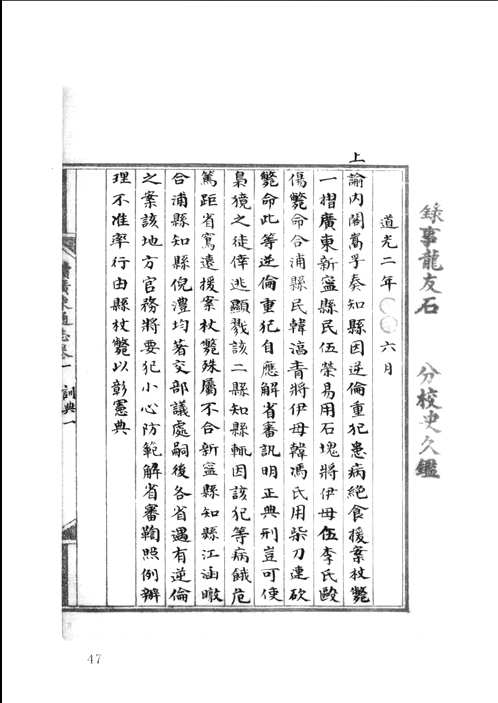 錄事龍友石
分校史久鑑
道光二年〇〇六月
上
諭內閣嵩孚奏知縣因逆倫重犯患病絕食援案杖斃
一摺廣東新寗縣民伍榮易用石塊將伊母伍李氏毆
傷斃命合浦縣民韓滈青將伊母韓馮氏用柴刀連砍
斃命此等逆倫重犯自應解省審訊明正典刑豈可使
梟獍之徒倖逃顯戮該二縣知縣輒因該犯等病餓危
篤距省窵遠援案杖斃殊屬不合新寗縣知縣江涵暾
合浦縣知縣倪澧均著交部議處嗣後各省遇有逆倫
之案該地方官務將要犯小心防範解省審鞫照例辦
理不准率行由縣杖斃以彰憲典
續廣東通志卷一 訓典一
47